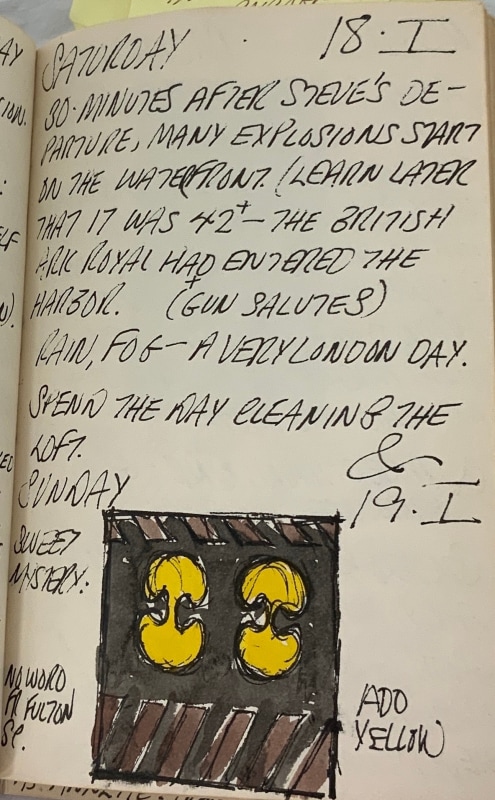 SATURDAY 18·I
30·MINUTES AFTER STEVE'S DE-
PARTURE, MANY EXPLOSIONS START
ON THE WATERFRONT. (LEARN LATER
THAT IT WAS 42+ – THE BRITISH
ARK ROYAL HAD ENTERED THE
HARBOR. (GUN SALUTES)
RAIN, FOG – A VERY LONDON DAY.
SPEND THE DAY CLEANING THE
LOFT. &
SUNDAY 19·I
SWEET
MYSTERY.
NO WORD
FR FULTON
ST.
ADD
YELLOW